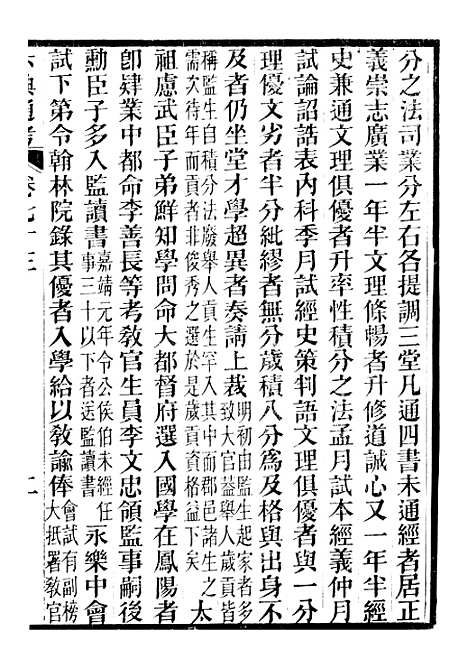 分之法司業分左右各提調三堂凡通四書未通經者居正
義崇志廣業一年半文理條暢者升修道誠心又一年半經
史兼通文理俱優者升率性積分之法孟月試本經義仲月
試論詔誥表內科季月試經史策判語文理俱優者與一分
理優文劣者半分紕繆者無分歲積八分爲及格與出身不
及者仍坐堂才學超異者奏請上裁明初由監生起家者多致大官益舉人歲貢皆
稱監生自積分法廢舉人貢生罕入監而郡邑諸生之需次待年而貢者非俊秀之選於是歲貢資格益下矣太
祖慮武臣子弟鮮知學問命大都督府選入國學在鳳陽者
卽肄業中都命李善長等考敎官生員李文忠領監事嗣後
勳臣子多入監讀書嘉靖元年令公侯伯未經任事三十以下者送監讀書永樂中會
試下第令翰林院錄其優者入學給以敎諭俸會試有副榜大抵署敎官
典通考
卷七十三
二